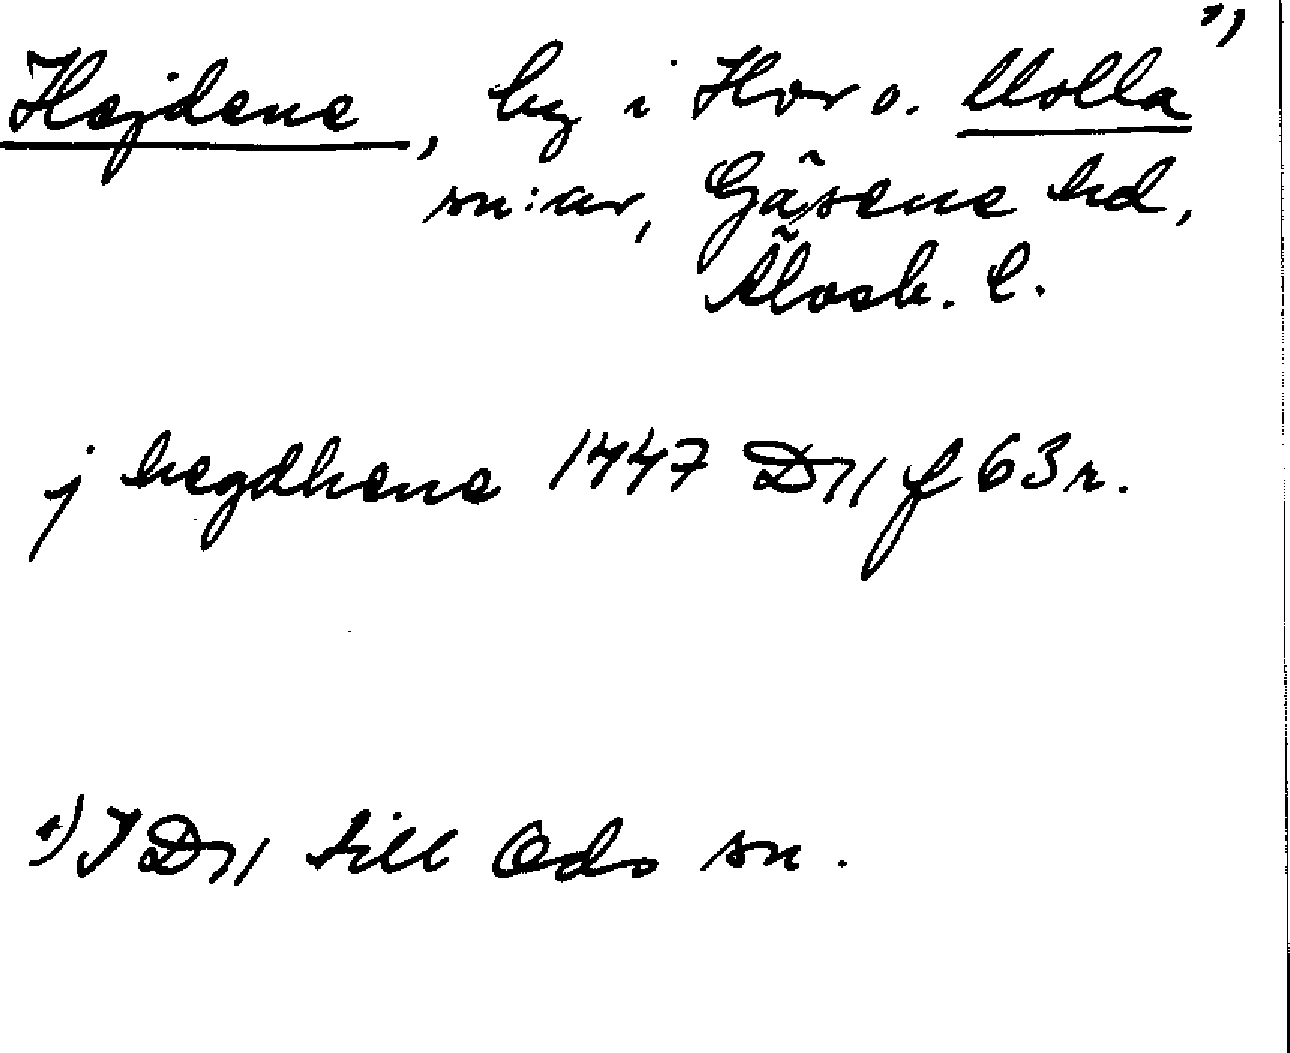 Hejdene, by i Hov o. Molla ¹)
sn:ar, Gäsene hd,
Älvsb. l.
j hegdhene 1447 D11 f 63r.
¹) I D11 till Ods sn.